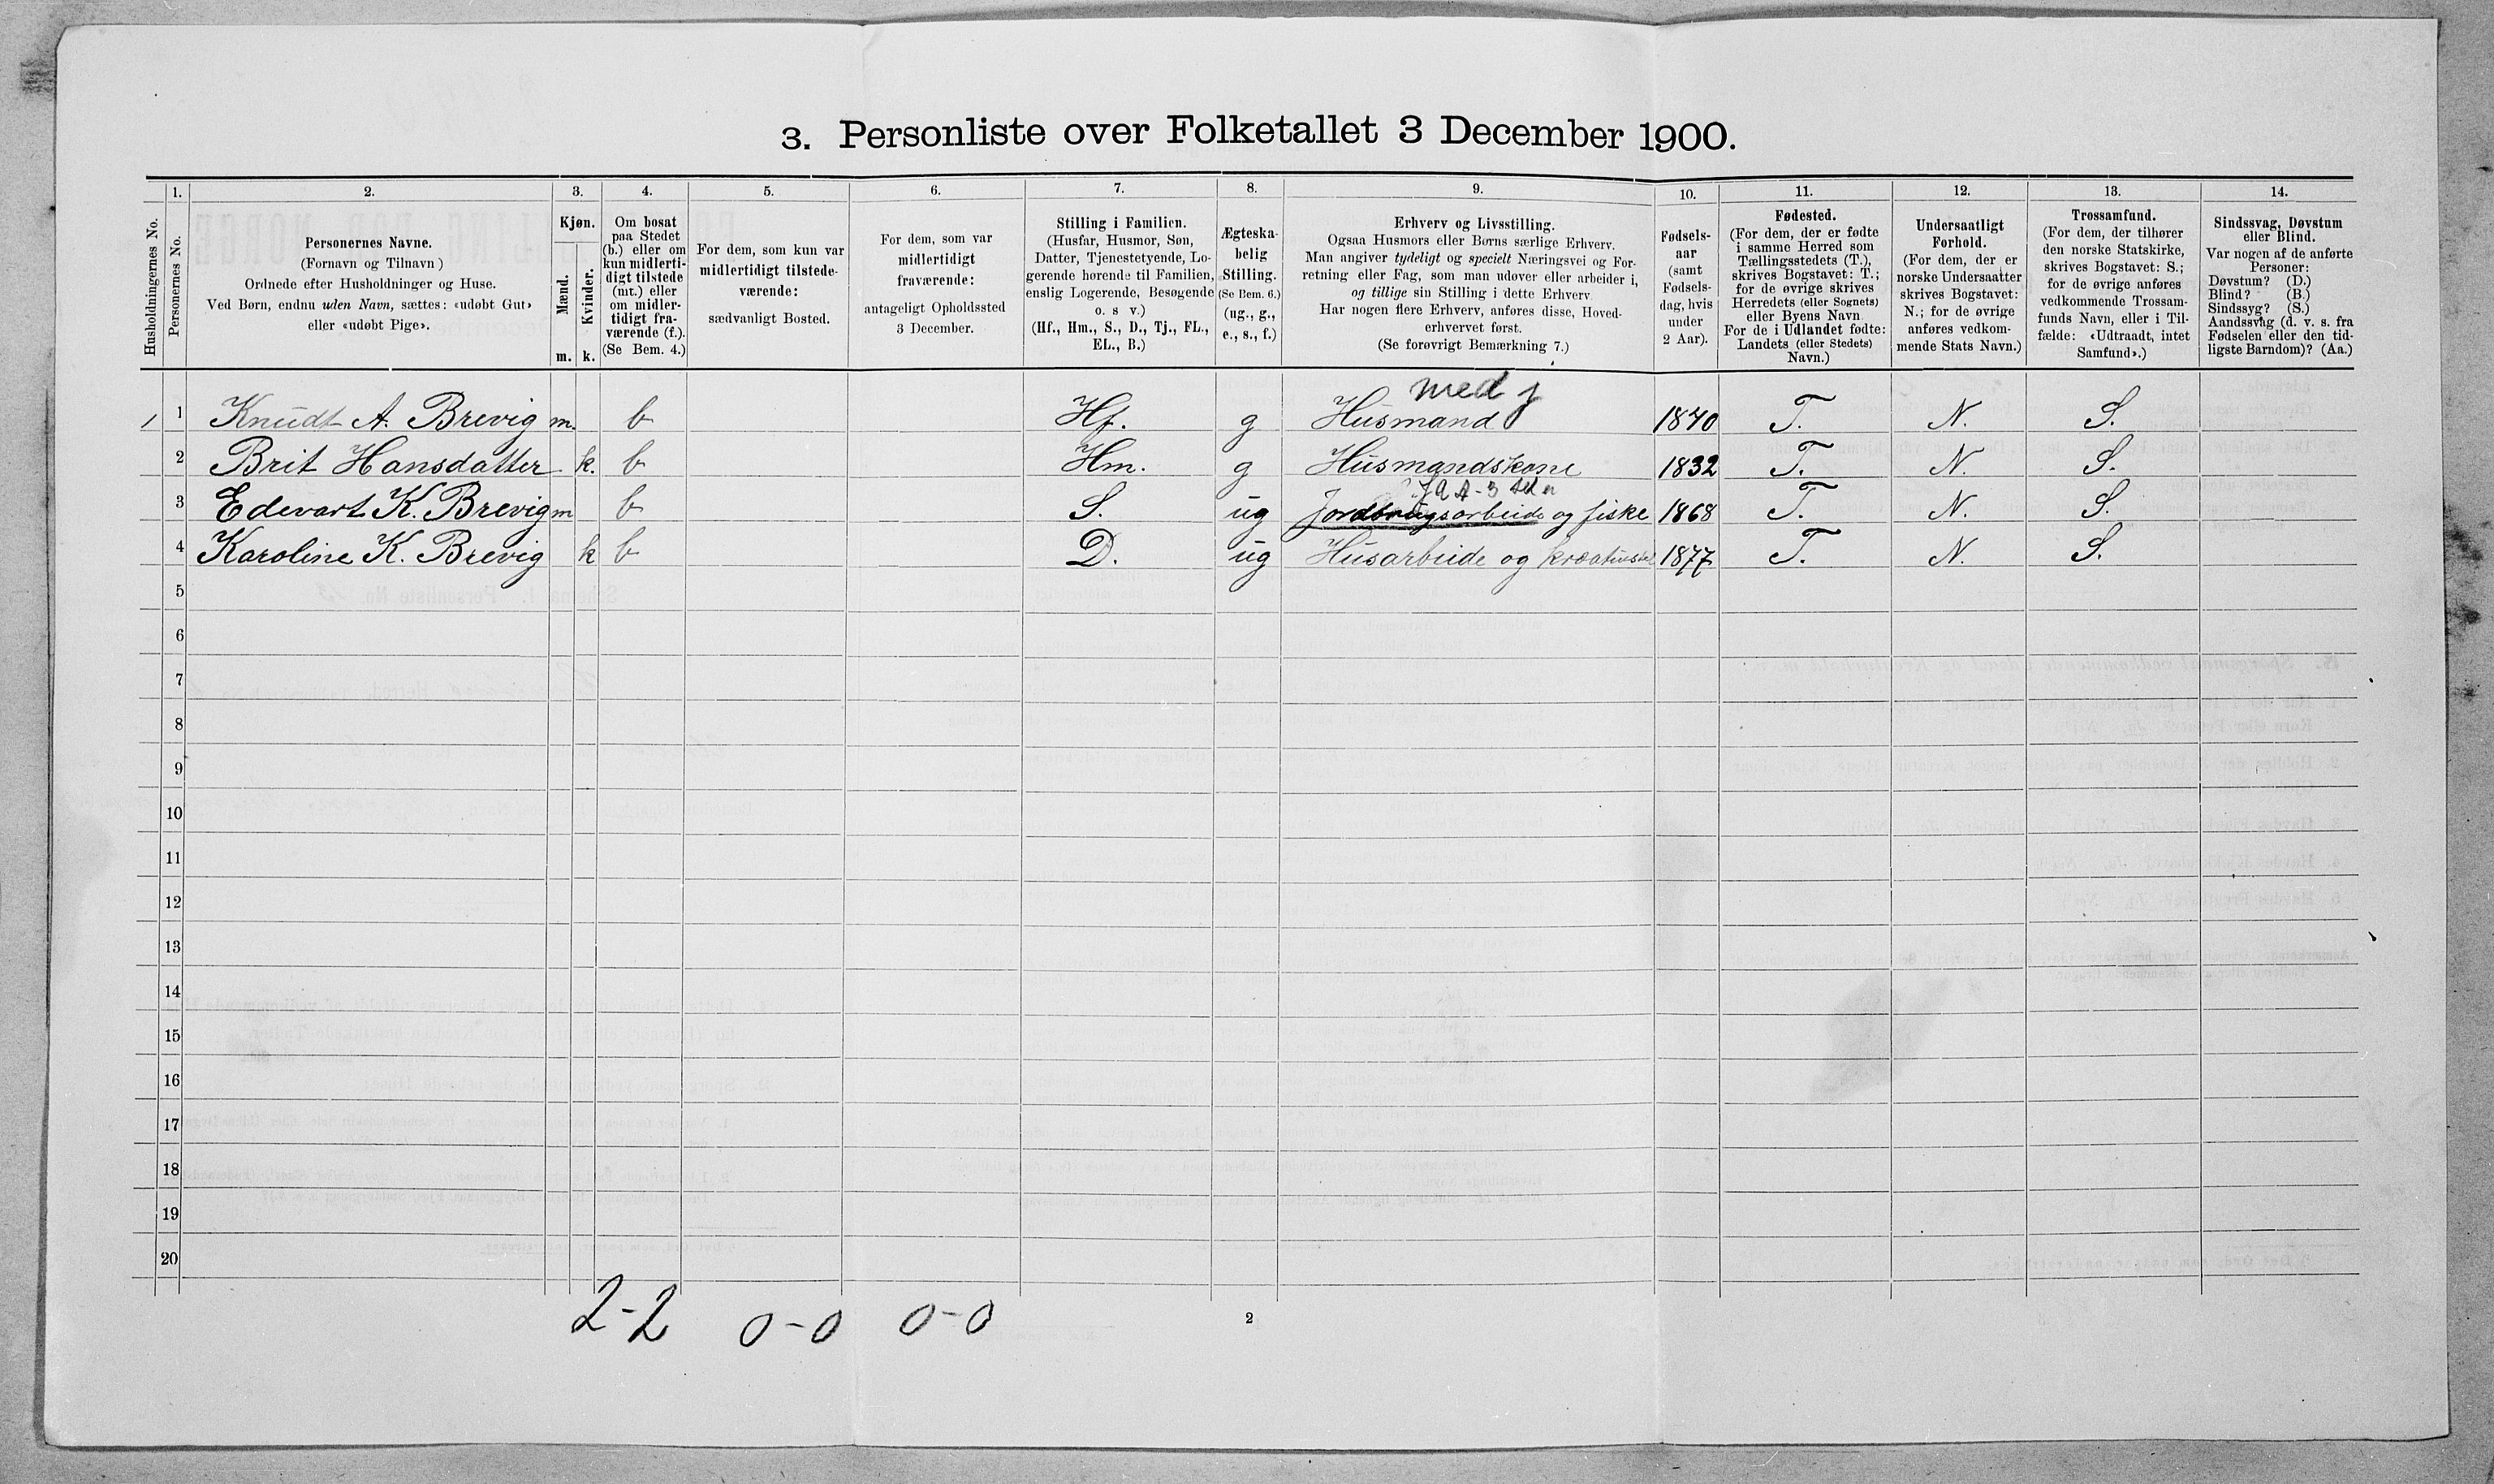 3. Personliste over Folketallet 3 December 1900.
1. 2. 3. 4. 5. 6. 7. 8. 9. 10. 11. 12. 13. 14.
Husholdningernes No.
Personernes No.
Personernes Navne.
(Fornavn og Tilnavn)
Ordnede efter Husholdninger og Huse.
Ved Børn, endnu uden Navn, sættes: «udøbt Gut»
eller «udøbt Pige».
Kjøn.
Mænd.
Kvinder.
m. k.
Om bosat
paa Stedet
(b.) eller om
kun midlerti-
digt tilstede
(mt.) eller
om midler-
tidigt fra-
værende (f.).
(Se Bem. 4.)
For dem, som kun var
midlertidigt tilstede-
værende:
sædvanligt Bosted.
For dem, som var
midlertidigt
fraværende:
antageligt Opholdssted
3 December.
Stilling i Familien.
(Husfar, Husmor, Søn,
Datter, Tjenestetyende, Lo-
gerende hørende til Familien,
enslig Logerende, Besøgende
o. s v.)
(Hf., Hm., S., D., Tj., FL.,
EL., B.)
Ægteska-
belig
Stilling.
(Se Bem. 6.)
(ug., g.,
e., s., f.)
Erhverv og Livsstilling.
Ogsaa Husmors eller Børns særlige Erhverv.
Man angiver tydeligt og specielt Næringsvei og For-
retning eller Fag, som man udøver eller arbeider i,
og tillige sin Stilling i dette Erhverv.
Har nogen flere Erhverv, anføres disse, Hoved-
erhvervet først.
(Se forøvrigt Bemærkning 7.)
Fødsels-
aar
(samt
Fødsels-
dag, hvis
under
2 Aar).
Fødested.
(For dem, der er fødte
i samme Herred som
Tællingsstedets (T.),
skrives Bogstavet: T.;
for de øvrige skrives
Herredets (eller Sognets)
eller Byens Navn
For de i Udlandet fødte:
Landets (eller Stedets)
Navn.)
Undersaatligt
Forhold.
(For dem, der er
norske Undersaatter
skrives Bogstavet:
N.; for de øvrige
anføres vedkom-
mende Stats Navn.)
Trossamfund.
(For dem, der tilhører
den norske Statskirke,
skrives Bogstavet: S.;
for de øvrige anføres
vedkommende Trossam-
funds Navn, eller i Til-
fælde: «Udtraadt, intet
Samfund».)
Sindssvag, Døvstum
eller Blind.
Var nogen af de anførte
Personer:
Døvstum? (D.)
Blind? (B.)
Sindssyg? (S.)
Aandssvag (d. v. s. fra
Fødselen eller den tid-
ligste Barndom)? (Aa.)
med j
1 1 Knudt A. Brevig m. b Hf. g Husmand 1840 T. N. S.
2 Brit Hansdatter k. b Hm. g Husmandskone 1832 T. N. S.
3 Edevart K. Brevig m b S. ug Jordbrugsarbeide og fiske 1868 T. N. S.
4 Karoline K. Brevig k b D. ug Husarbeide og 1877 T. N. S.
5
6
7
8
9
10
11
12
13
14
15
16
17
18
19
20
2-2 0-0 0-0
2